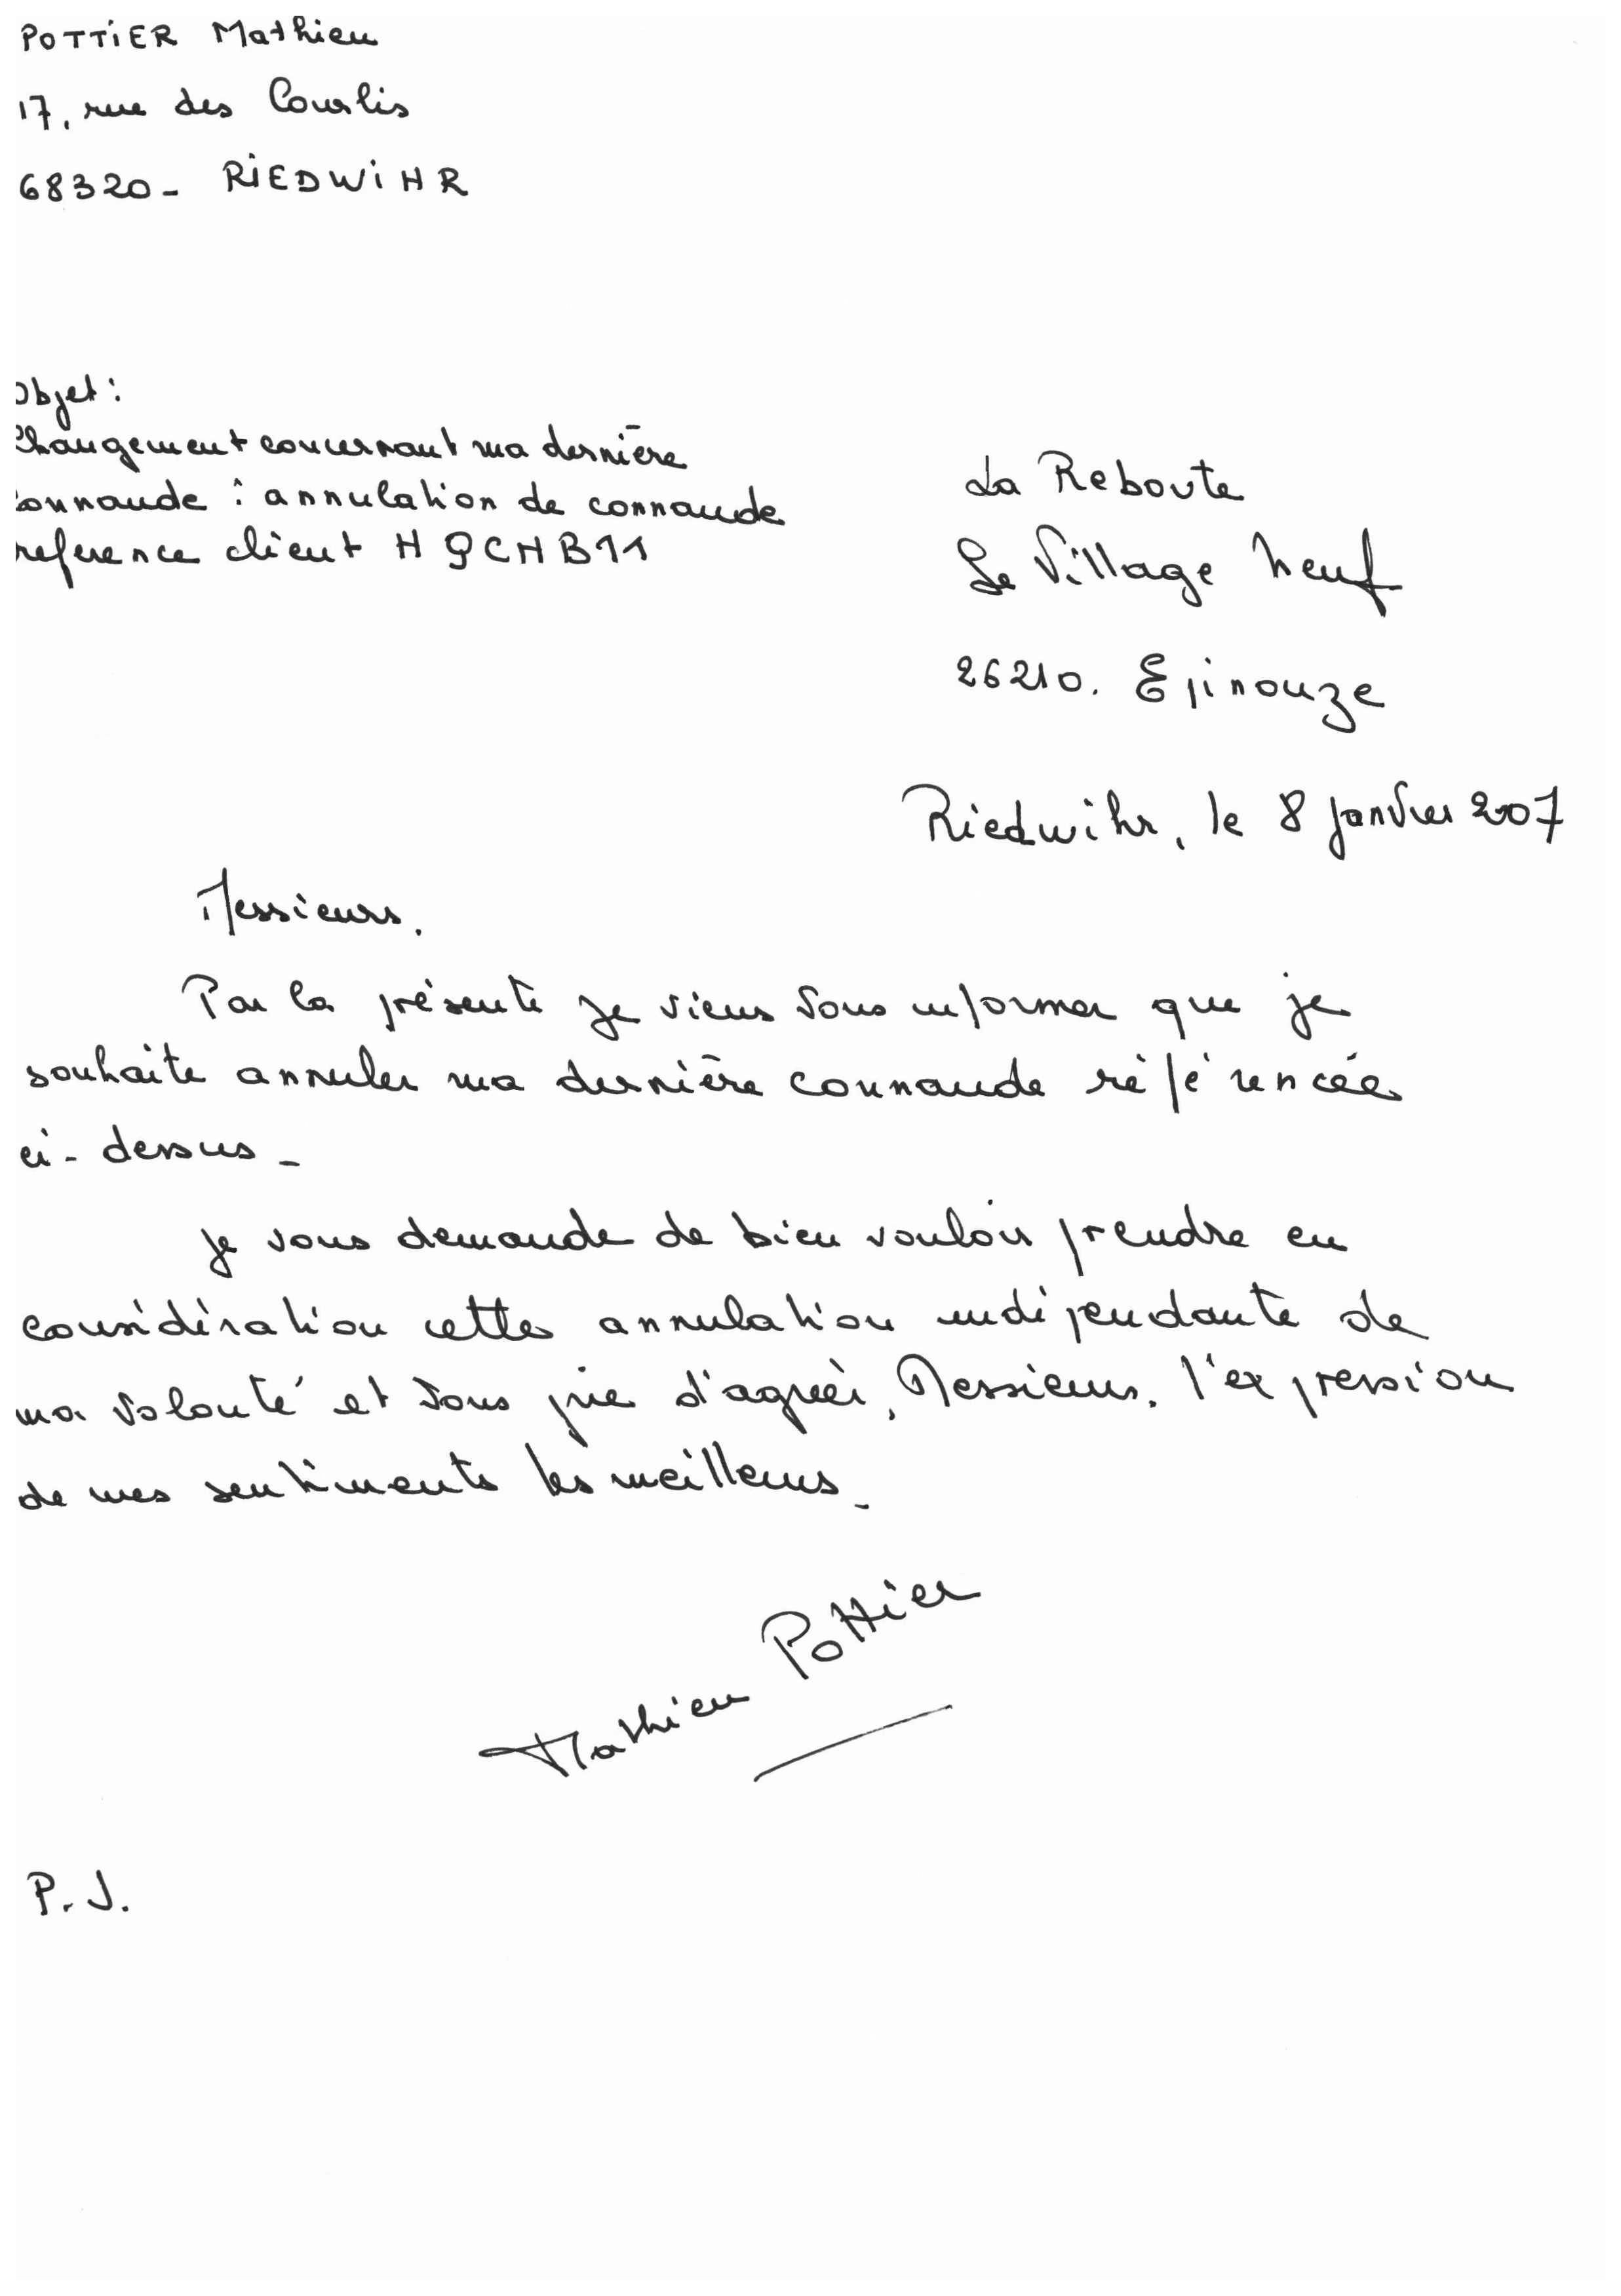 POTTIER Mathieu
17, rue des Courlis
68320 - RIEDWIHR
Objet :
Changement concernant ma dernière
commande : annulation de commande
reference client HQCHB11
La Reboute
Le Village Neuf
26210. Epinouze
Riedwihr, le 8 janvier 2007
Messieurs.
Par la présente je viens vous informer que je
souhaite annuler ma dernière commande référencée
ci-dessus -
Je vous demande de bien vouloir prendre en
considération cette annulation indépendante de
ma volonté et vous prie d'agréer, Messieurs, l'expression
de mes sentiments les meilleurs -
Mathieu Pottier
P.J.